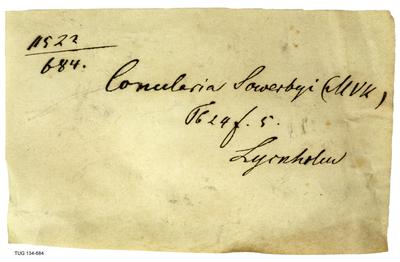 1522
684.
Conularia Sowerbyi (MVK)
Tb 24 f. 5.
Lyckholm
TUG 134-684